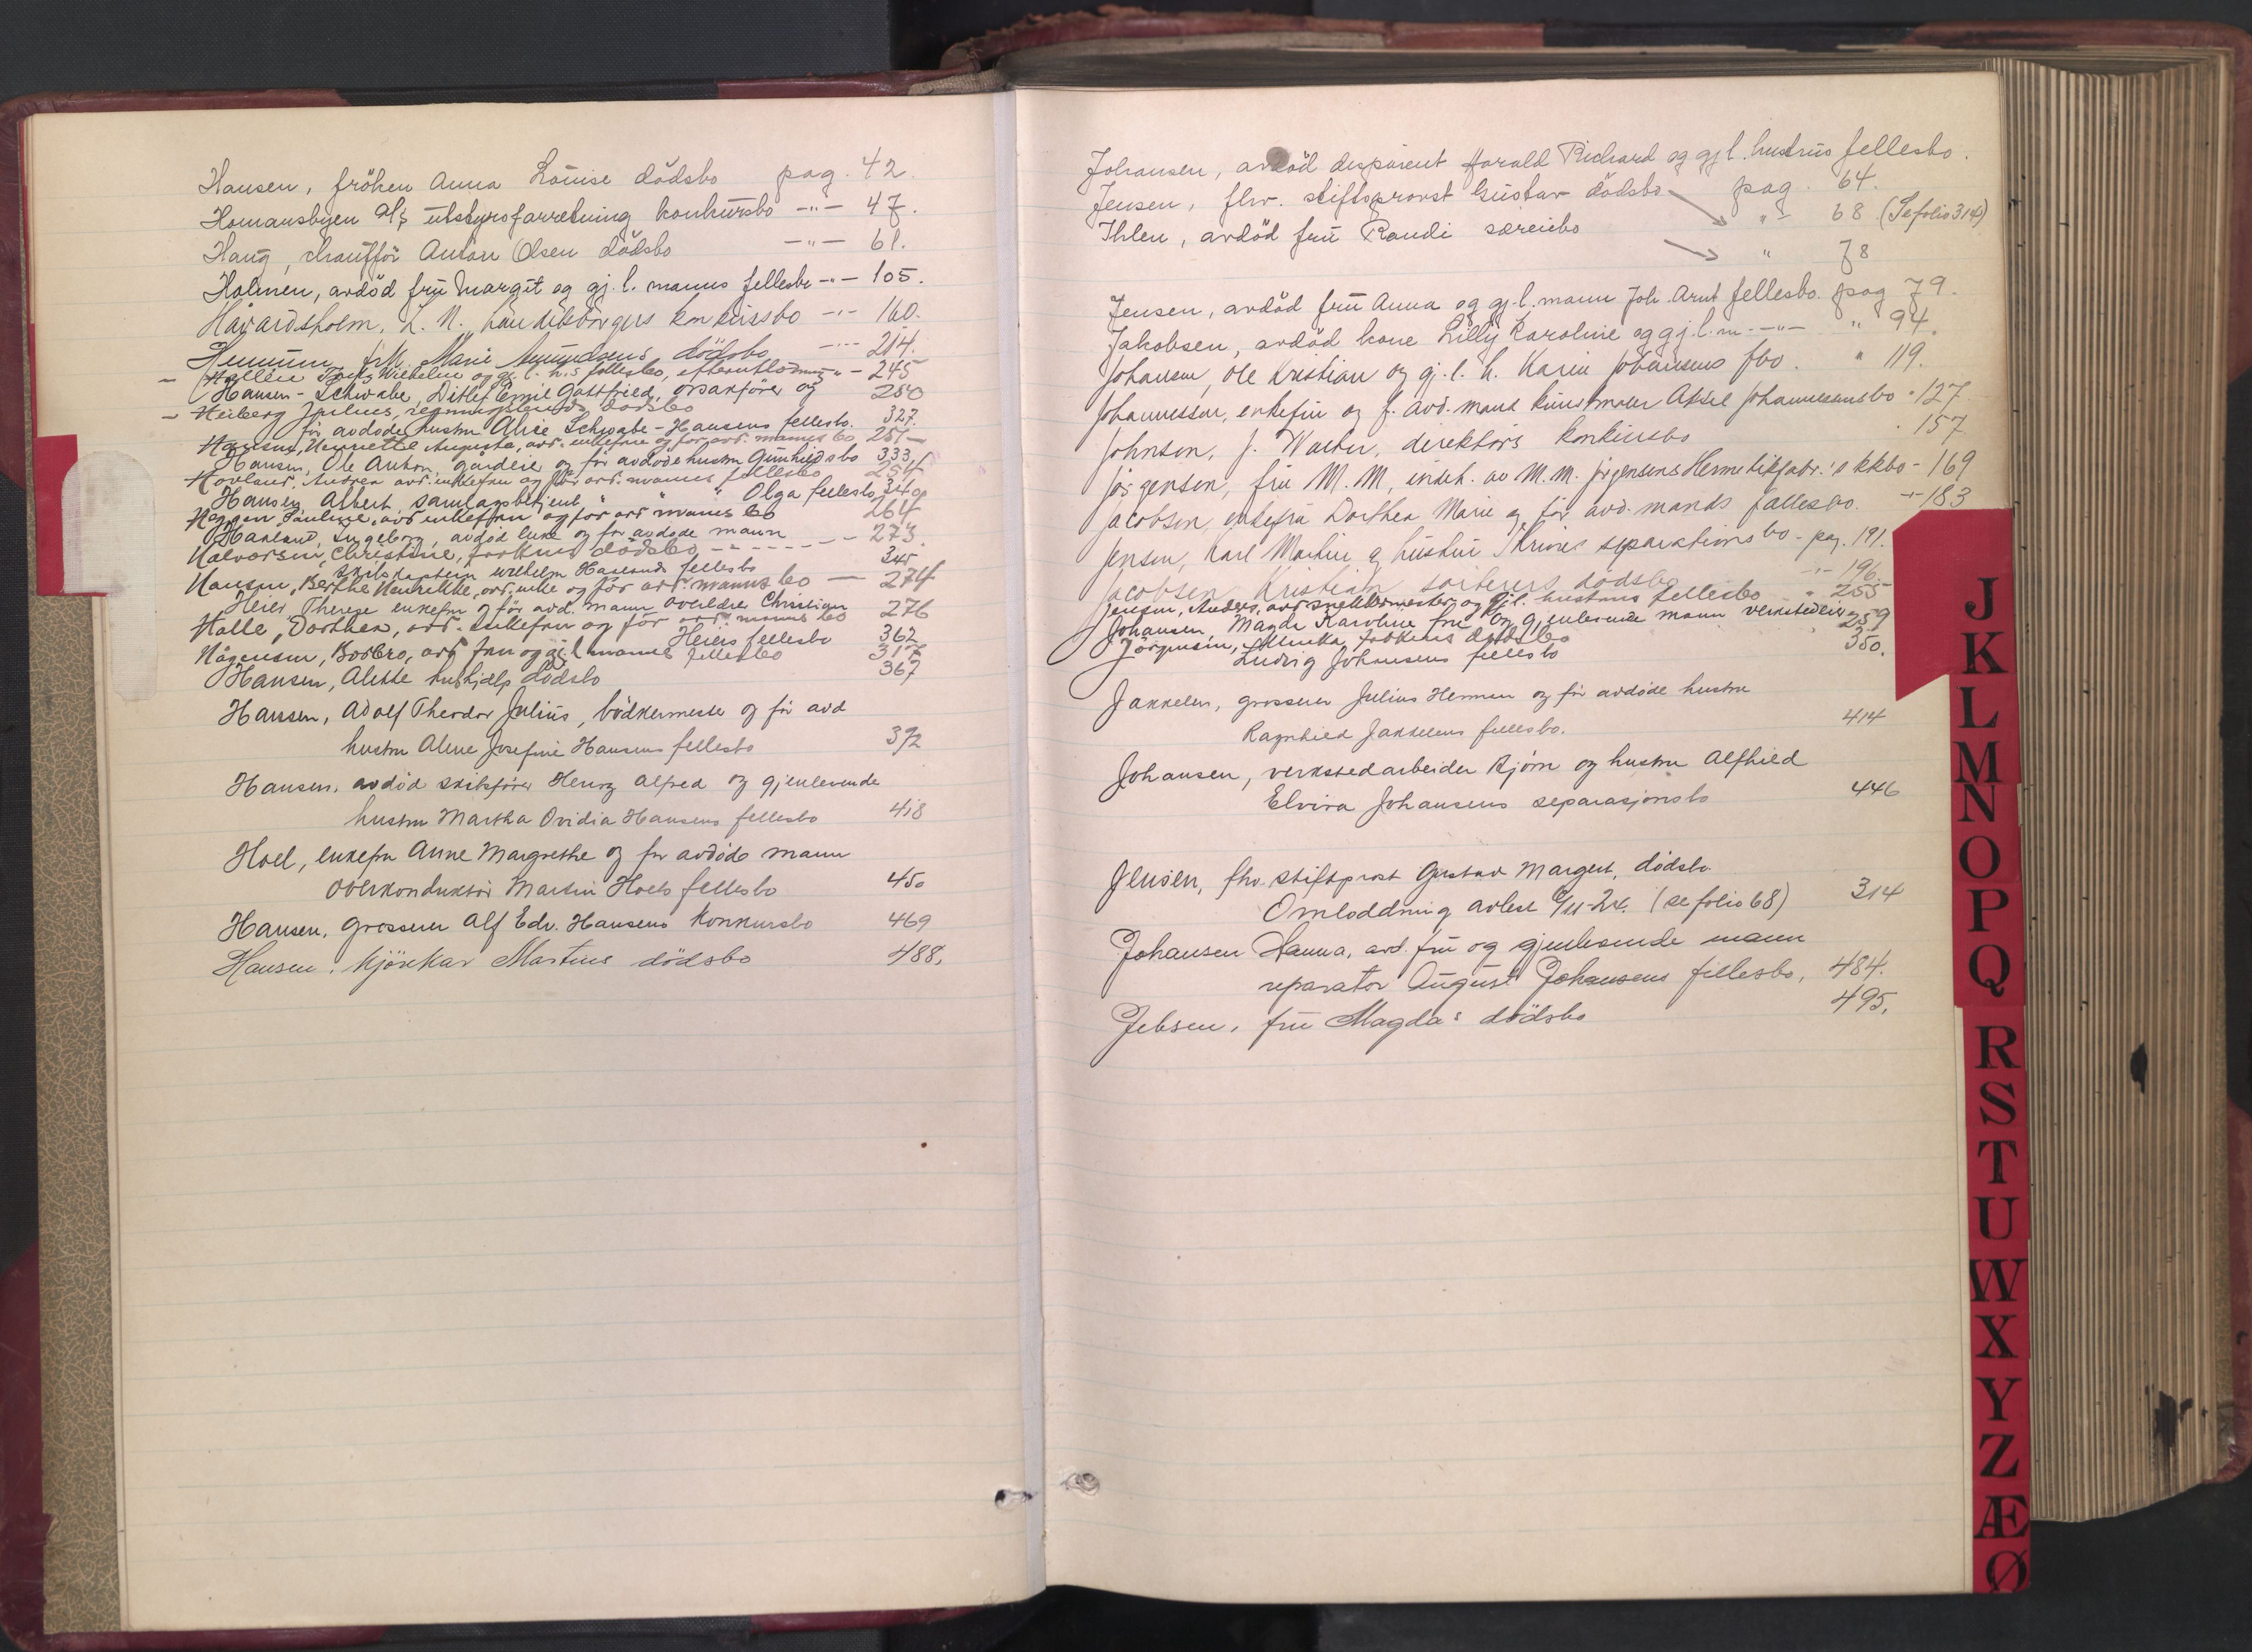 Hansen, fröken Anna Louise dödsbo pag. 42.
Homansbyen A/S utstyrsforretning konkursbo -"- 47.
Haug, chaufför Anton Olsen dödsbo -"- 61.
Holmen, avdöd fru Margit og gj. l. manns fellesbo -"- 105.
Håvardsholm, L. N. handelsborgers konkursbo -"- 160.
Hennum frk. Marie Amundsens dödsbo -"- 214.
Wilhelm og gj. l. h.s fellesbo, efterutlodning -"- 245
Hansen-Schwabe, Ditlef Emil Gottfried, orsakförer og 250
Heiberg Julius, dödsbo
för avdöde hustru Alise Schwabe-Hansens fellesbo. 327.
Henriette Augusta, avd. enkefru og for avd. manns bo 251
Hansen, Ole Anton, gårdeier og för avdöde hustru Gunhilds bo 333,
Hovland, Andrea avd. enkefru og for avd. manns fellesbo 254
Hansen, Albert, samlagsbetjent " " " Olga fellesbo 340
Pauline, avd. enkefru og for avd. manns bo 264
Haaland, Ingeborg, avdöd enke og for avdöde mann
Halvorsen, Christine, frökens dödsbo - - - - 273.
skibskaptein Wilhelm Haalands fellesbo 345
Hansen, Berthe Henrikke, avd. enke og for avd. manns bo — 274
Heier, Therese enkefru og för avd. mann overlærer Christian
Halle, Dorthea, avd. enkefru og for avd. manns bo 276
Heiers fellesbo 362
Hågensen, Borbro, avd. fru og gj. l. manns fellesbo 317
Hansen, Alette hushjælp dödsbo 367
Hansen, Adolf Theodor Julius, bödkermester og för avd
hustru Aline Josefine Hansens fellesbo 392
Hansen, avdöd skibsförer Henry Alfred og gjenlevende
hustru Martha Ovidia Hansens fellesbo 418
Hoel, enkefru Anne Margrethe og for avdöde mann
overkonduktör Martin Hoels fellesbo 450
Hansen, grosserer Alf Edv. Hansens konkursbo 469
Hansen, kjörekar Martins dödsbo 488,
Johansen, avdöd disponent Harald Richard og gj. l. hustrus fellesbo.
pag. 64.
Jensen, fhv. stiftsprovst Gustav dödsbo " - 68 (Se folio 314)
Ihlen, avdöd fru Randi særeiebo
" 78
Jensen, avdöd fru Anna og gj. l. mann Joh. Arnt fellesbo pag 79.
Jakobsen, avdöd kone Lilly Karoline og gj. l. m. -"- " 94.
Johansen, Ole Kristian og gj. l. h. Karin Johansens fbo. " 119.
Johannessen, enkefru og f. avd. mand kunstmaler Aksel Johannessens bo - 127
Johnson, J. Walter, direktörs konkursbo " 157
Jörgensen, fru M. M, indeh. av M. M. Jörgensens Hermetikfabr.'s kkbo - 169
Jacobsen, enkefru Dorthea Marie og för avd. mands fellesbo. -"- 183
Jensen, Karl Martin og hustru Thrines separationsbo - pag. 191.
Jacobsen Kristian, sorterers dödsbo -"- 196
Jensen, Anders, avd. snekkermester og gjl. hustrus fellesbo " 255
Johansen, Magda Karoline fru og gjenlevende mann verkstedeier 259
Jörgensen, frökens dödsbo
Ludvig Johansens fellesbo 350.
Jakkelen, grosserer Julius Herman og för avdöde hustru
Ragnhild Jakkelens fellesbo. 414
Johansen, verkstedarbeider Bjørn og hustru Alfhild
Elvira Johansens separasjonsbo 446
Jensen, fhv. stiftsprost Gustav Margert, dödsbo
Omloddning avlest 6/11-24. (se folio 68) 314
Johansen Hanna, avd. fru og gjenlevende mann
reparatör August Johansens fellesbo, 484.
Jebsen, fru Magda's dödsbo 495,
J
K
L
M
N
O
P
Q
R
S
T
U
W
X
Y
Z
Æ
Ø